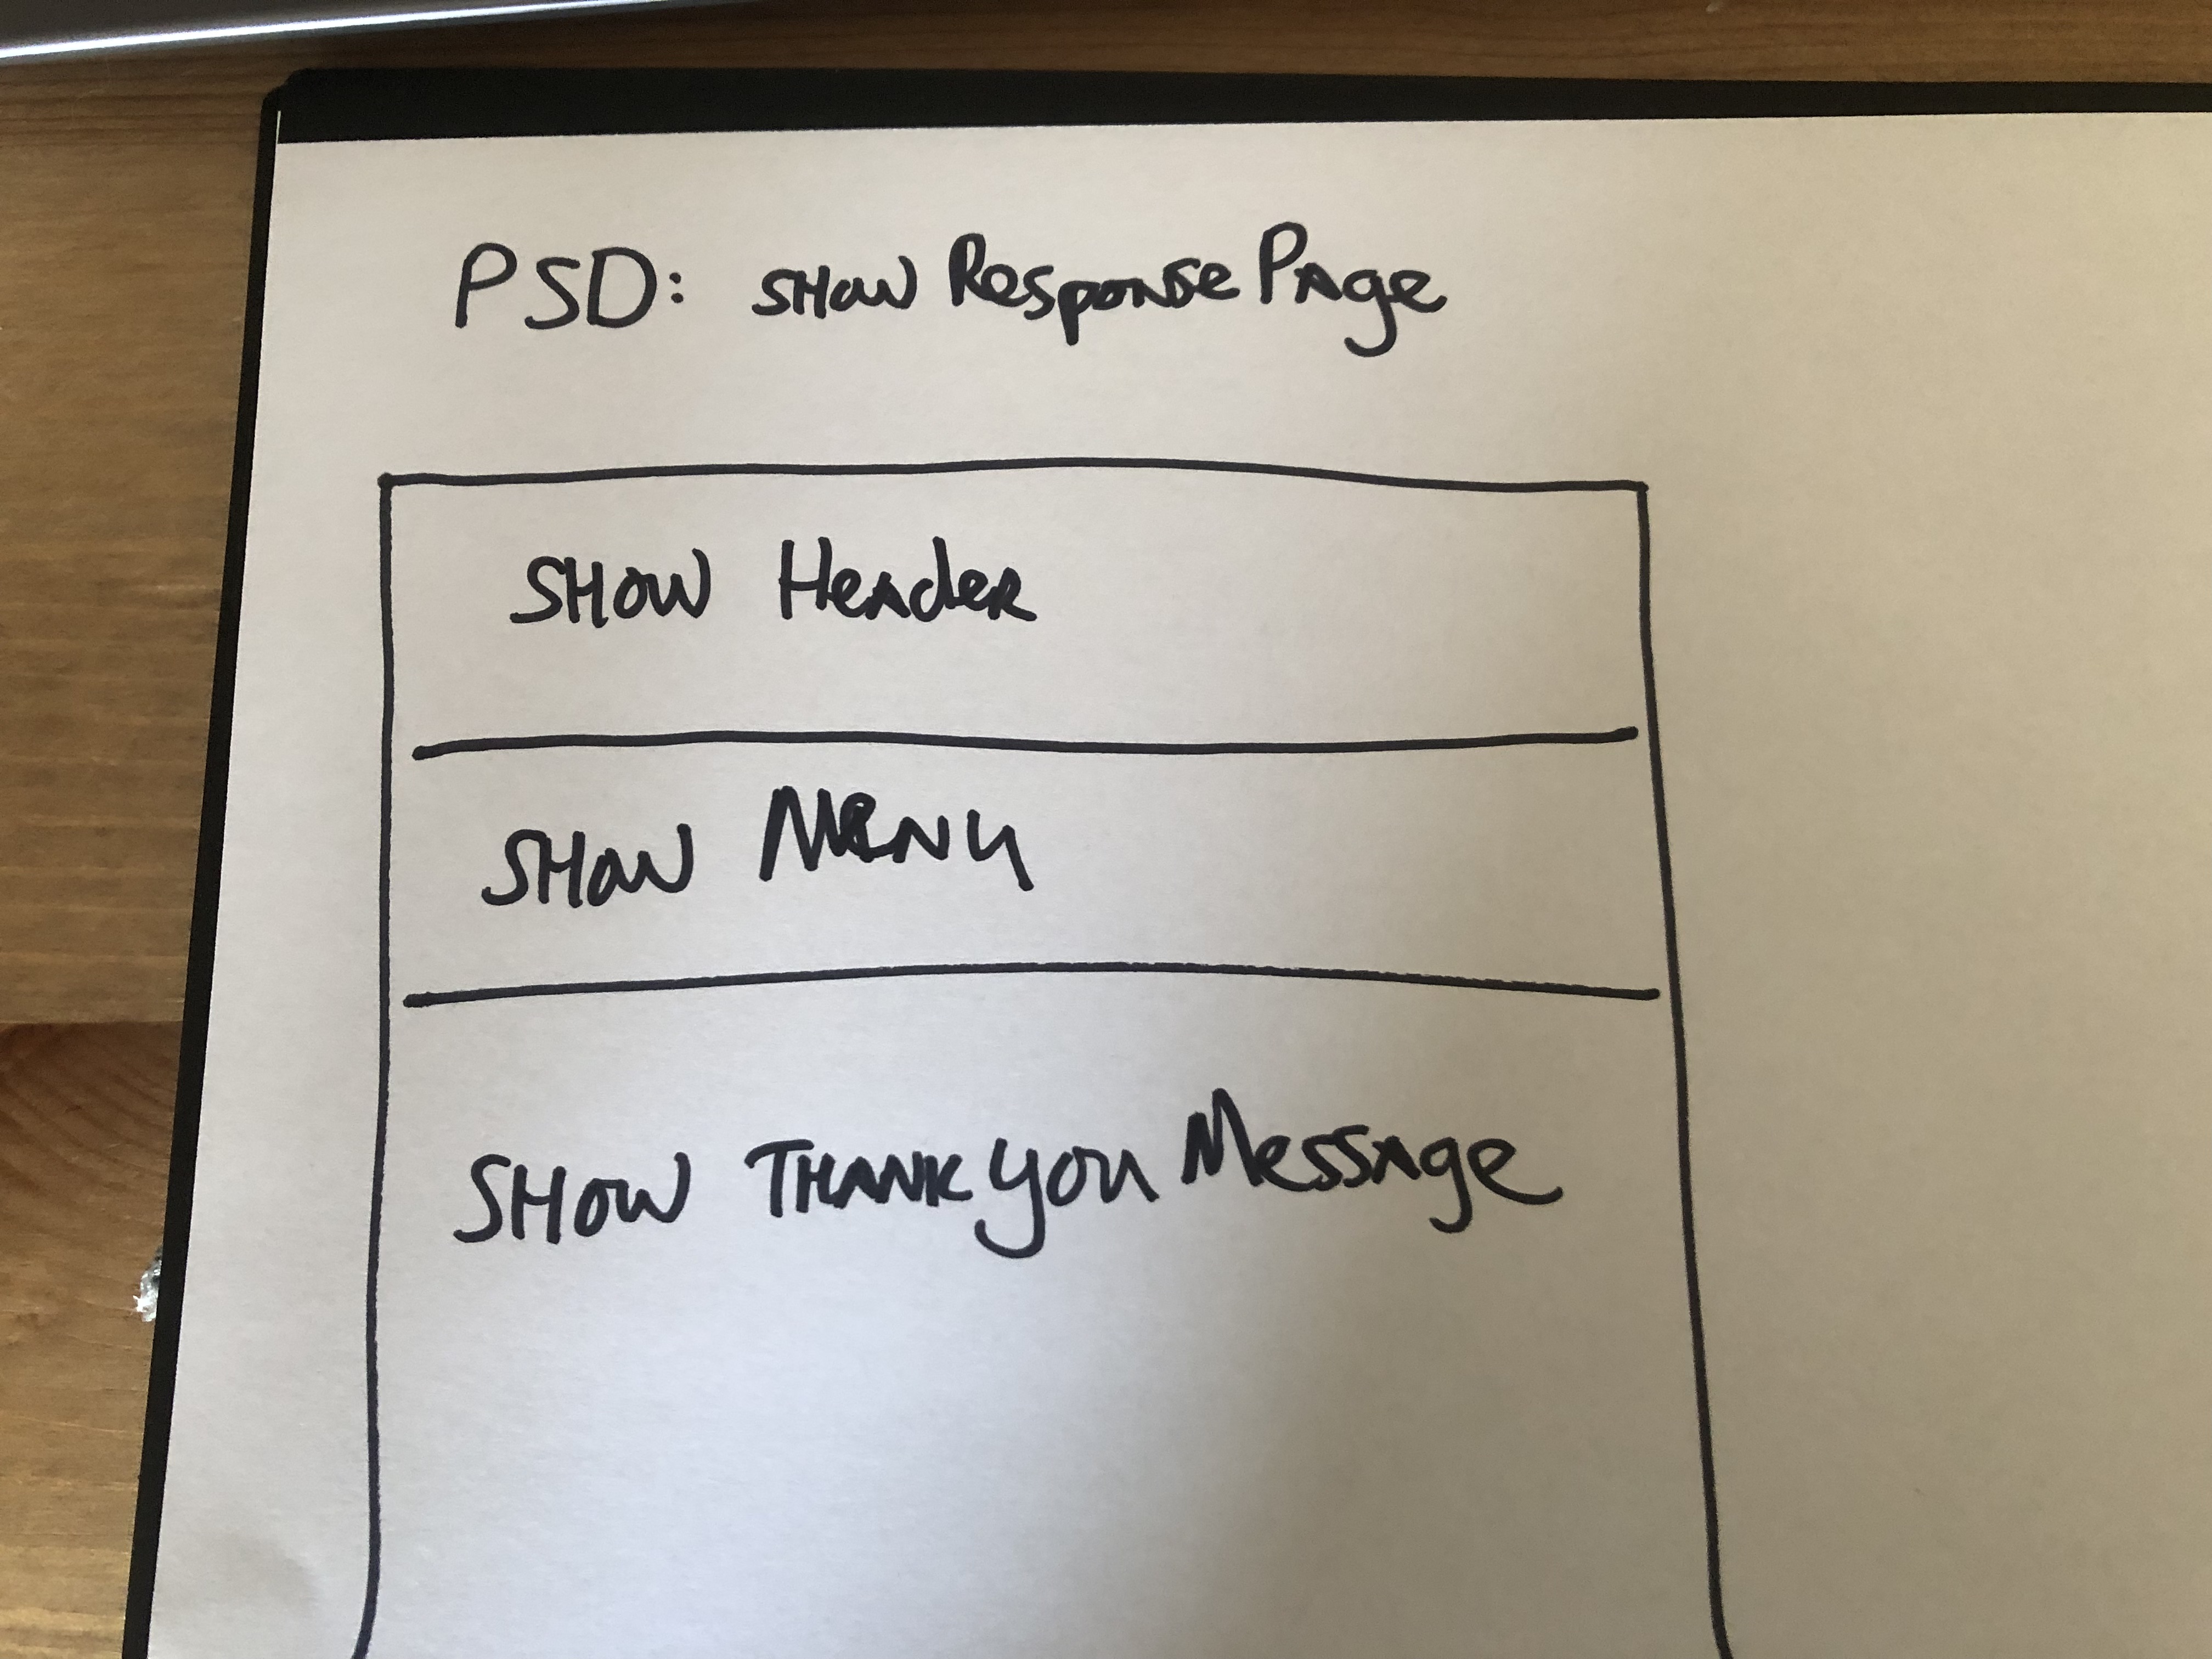 PSD: SHOW Response Page
SHOW Header
SHOW Menu
SHOW THANKyou Message